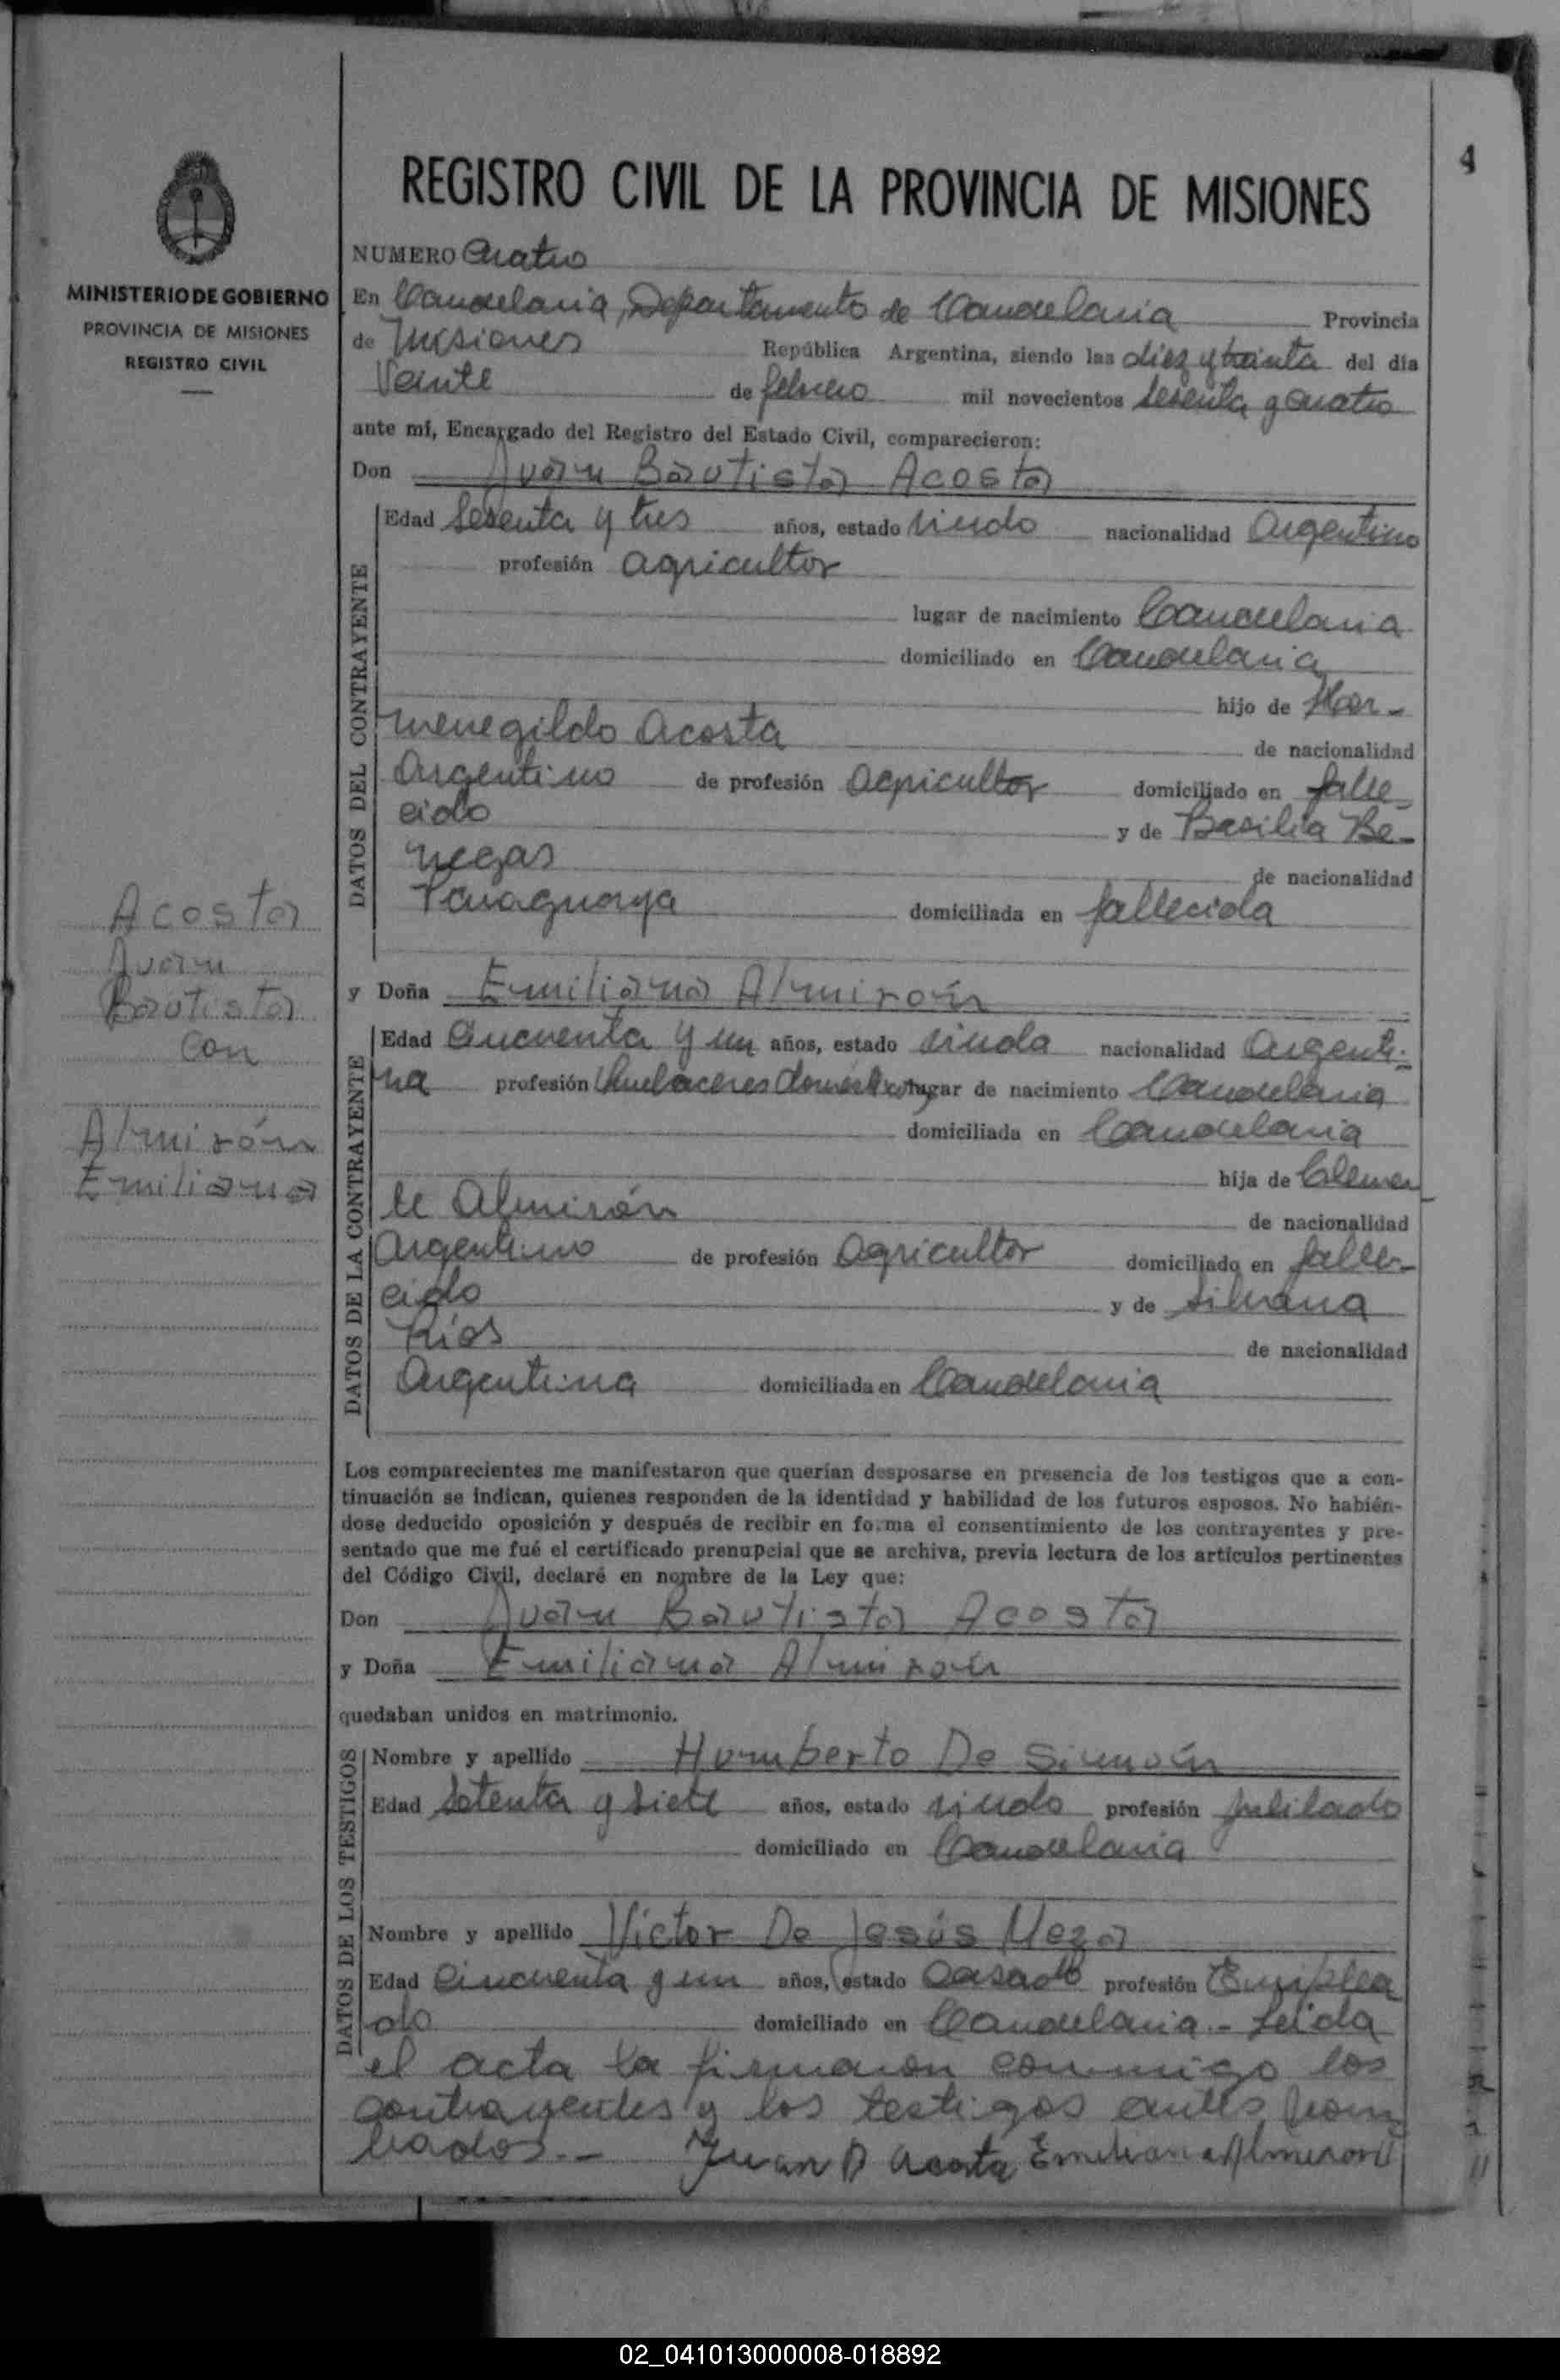 4
REGISTRO CIVIL DE LA PROVINCIA DE MISIONES
MINISTERIO DE GOBIERNO
PROVINCIA DE MISIONES
REGISTRO CIVIL
NUMERO Cuatro
En Candelaria, Departamento de Candelaria Provincia
de Misiones República Argentina, siendo las diez y treinta del día
Veinte de febrero mil novecientos sesenta y cuatro
ante mí, Encargado del Registro del Estado Civil, comparecieron:
Don Juan Bautista Acosta
DATOS DEL CONTRAYENTE
Edad Sesenta y tres años, estado viudo nacionalidad Argentino
profesión agricultor
lugar de nacimiento Candelaria
domiciliado en Candelaria
hijo de Her-
menegildo Acosta de nacionalidad
Argentino de profesión agricultor domiciliado en falle-
cido y de Basilia Be-
negas de nacionalidad
Paraguaya domiciliada en fallecida
y Doña Emiliana Almirón
DATOS DE LA CONTRAYENTE
Edad Cincuenta y un años, estado viuda nacionalidad Argenti-
na profesión Quehaceres domésticos lugar de nacimiento Candelaria
domiciliada en Candelaria
hija de Clemen
te Almirón de nacionalidad
Argentino de profesión Agricultor domiciliado en falle-
cido y de Silvana
Ríos de nacionalidad
Argentina domiciliada en Candelaria
Acosta
Juan
Bautista
con
Almirón
Emiliana
Los comparecientes me manifestaron que querían desposarse en presencia de los testigos que a con-
tinuación se indican, quienes responden de la identidad y habilidad de los futuros esposos. No habién-
dose deducido oposición y después de recibir en forma el consentimiento de los contrayentes y pre-
sentado que me fué el certificado prenupcial que se archiva, previa lectura de los artículos pertinentes
del Código Civil, declaré en nombre de la Ley que:
Don Juan Bautista Acosta
y Doña Emiliana Almirón
quedaban unidos en matrimonio.
DATOS DE LOS TESTIGOS
Nombre y apellido Humberto De Simón
Edad Setenta y siete años, estado viudo profesión jubilado
domiciliado en Candelaria
Nombre y apellido Victor De Jesús Meza
Edad Cincuenta y un años, estado Casado profesión Emplea
do domiciliado en Candelaria - Leída
el acta la firmaron conmigo los
contrayentes y los testigos antes nom
brados.- Juan B Acosta Emiliana Almiron
02_041013000008-018892